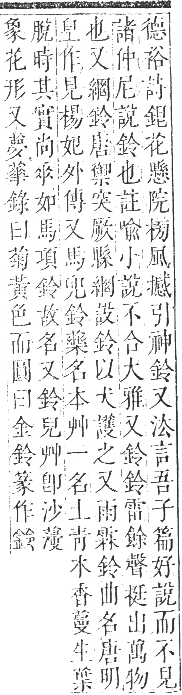 德裕詩銀花懸院牓風撼引神鈴又法言吾子篇好說而不見
諸仲尼說鈴也註喩小說不合大雅又鈴鈴雷餘聲挺出萬物
也又綱鈴唐禦突厥縣綱設鈴以犬護之又雨霖鈴曲名唐明
皇作見楊妃外傳又馬兜鈴藥名本艸一名土靑木香蔓生葉
脫時其實尙𠂹如馬項鈴故名又鈴兒艸卽沙蔆
象花形又夢華錄曰菊黃色而圓曰金鈴篆作鈴